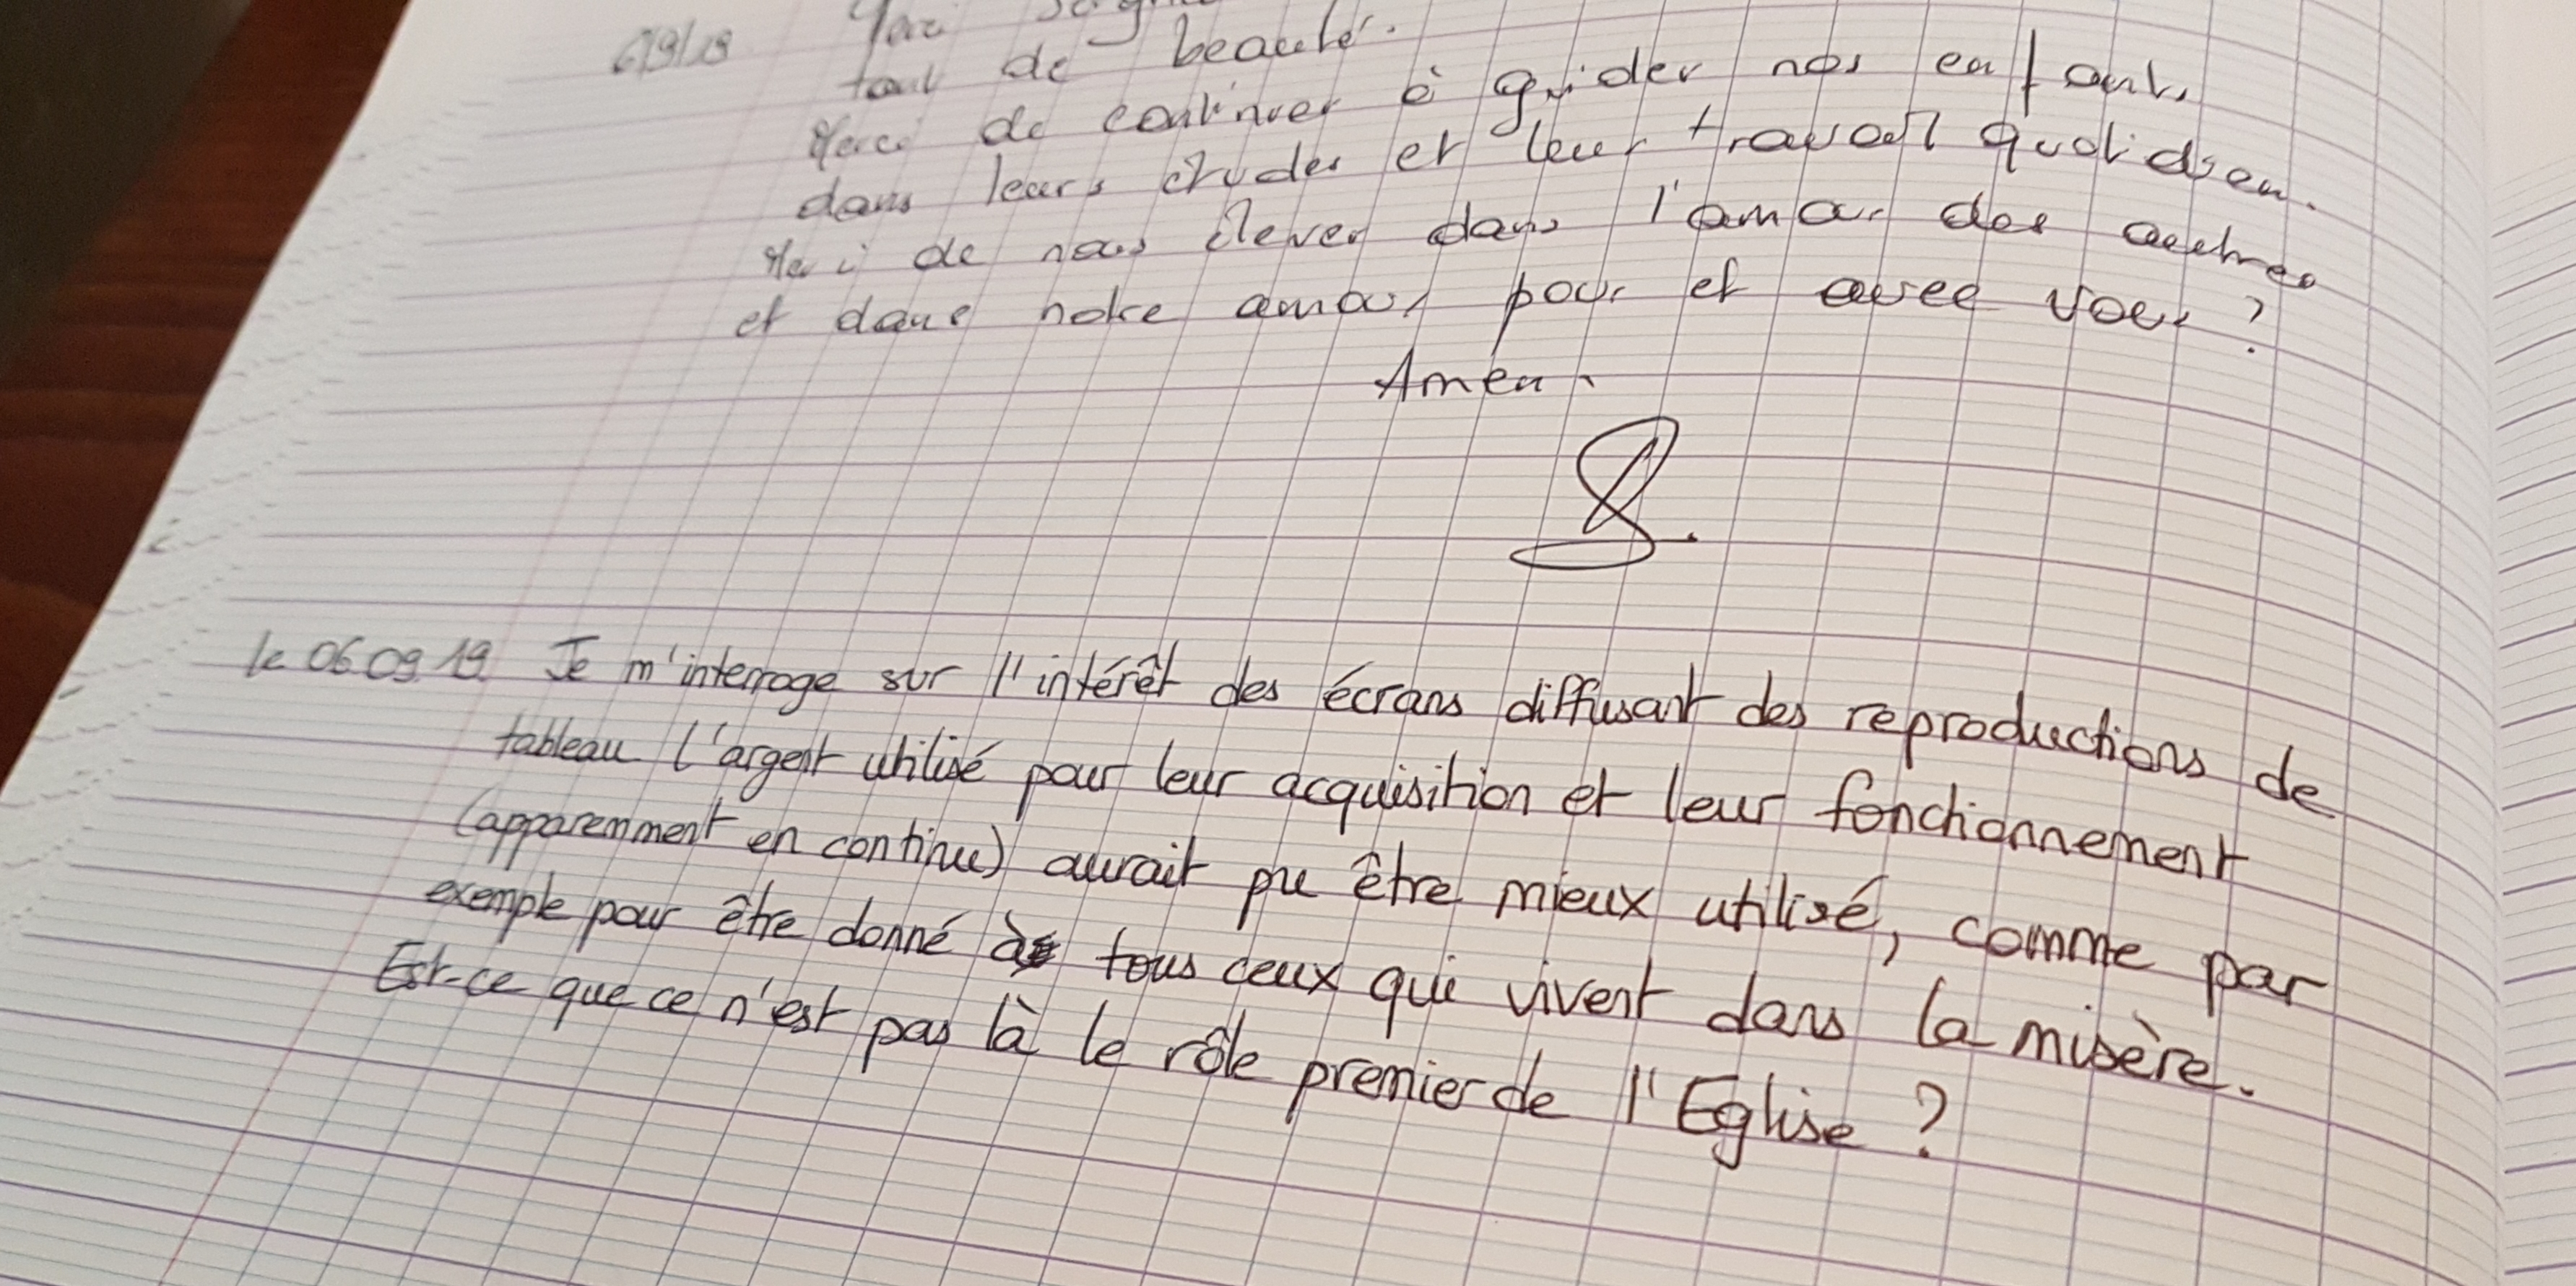 6/9/19 Merci
tant de beauté.
Merci de continuer à guider nos enfants
dans leurs études et leur travail quotidien.
Merci de nous élever dans l'amour des autres
et dans notre amour pour et avec vous ?
Amen.
le 06.09.19. Je m'interroge sur l'intérêt des écrans diffusant des reproductions de
tableau l'argent utilisé pour leur acquisition et leur fonctionnement
(apparemment en continue) aurait pu être mieux utilisé, comme par
exemple pour être donné à tous ceux qui vivent dans la misère.
Est-ce que ce n'est pas là le rôle premier de l'Eglise ?